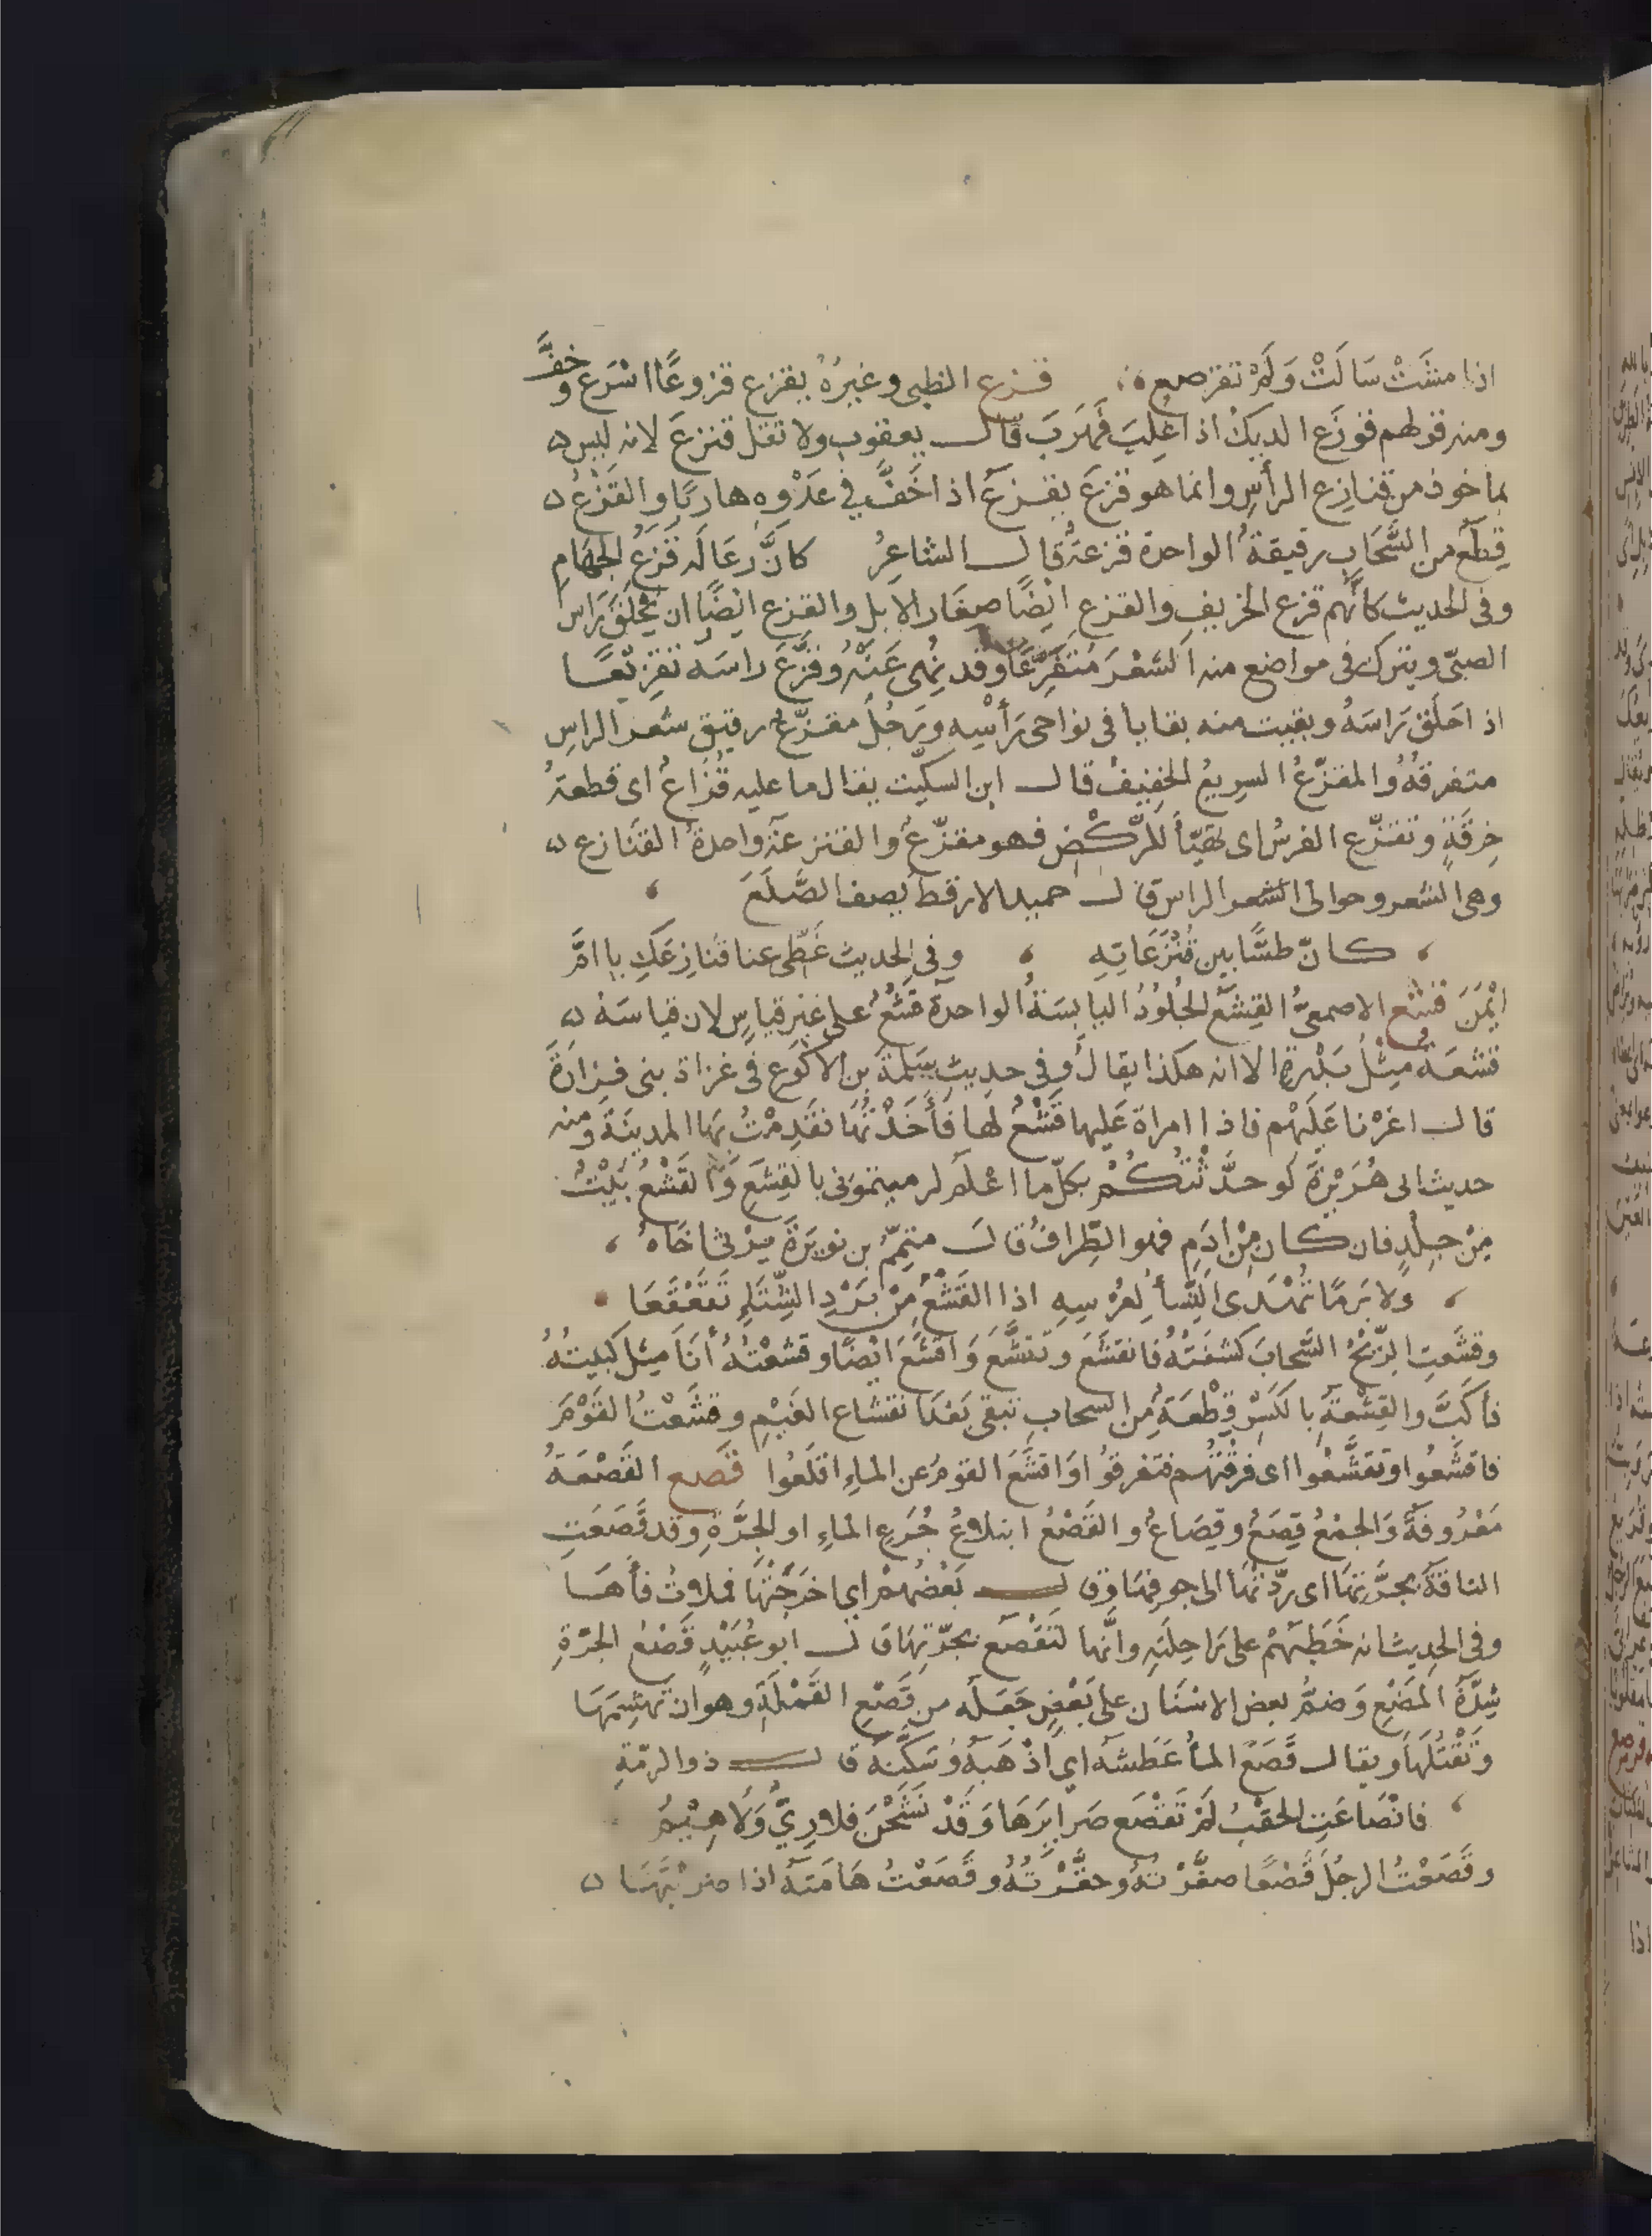 اذا مشَتْ سَالَتْ وَلَمْ تقرصع ، قزع الظبى وغيرُهُ يقزع قزوعًا اسْرَع وخفَّ
ومنه قولهم قوزَع الديكُ اذا غُلِبَ فَهَرَبَ قال يعقوب ولا تقل قنزعَ لانه ليس
بماخوذ من قنازِع الرأسِ وانما هو قزعَ يقزعُ اذا خَفَّ فى عَدْوِه هاربًا والقَزَعُ
قِطَعٌ من السَّحَابِ رقيقةٌ الواحدة قزعةٌ قال الشاعِرُ كانَّ رعَالَه قَزَعُ الجَهَامِ
وفى الحديث كانَّهم قزع الخريفِ والقزع ايْضًا صِغَار الابل والقزع ايْضًا ان يُحْلَقَ رَاس
الصبىّ ويترك فى مواضع منه الشعْرَ مُتَفَرِّقًا وقد نُهى عَنْهُ وقزَّعَ راسَه تقزيعًا
اذا حَلَق رَاسَهُ وبقيت منه بقايا فى نواحى رَأْسِهِ ورَجُلٌ مقزّعٌ رقيق شعر الراسِ
متفرقُهُ والمقزّعُ السرِيعُ الخفِيفُ قال ابن السكيّت يقال ما عليه قُزَاعٌ اى قطعة
خِرقةٍ وتقزّع الفرسُ اى تهيّأ للرّكضِ فهو مقزّعٌ والقنزعة واحدة القنازع
وهى الشعر وحوالى الشعر الراس قال حميد الارقط يصف الصَّلَعَ ،
، كانّ طسًّا بين قُنْزُعَاتِهِ ، وفى الحديث غَطّى عنا قنازِعَكِ يا امَّ
ايْمَنَ قشع الاصمعىُّ القِشَعُ الجُلُودُ اليابسَةُ الواحدة قَشْعٌ على غيْرِ قياسٍ لان قياسَهُ
قشعَةٌ مِثْلُ بَدْرةٍ الا انه هكذا يقالُ وفى حديث سلمَةَ بن الاكوَع فى غزاة بنى فزارَةَ
قال اغرْنا عَلَيْهم فاذا امراة عَليها قَشْعٌ لها فأَخَذْتُهَا فقَدِمْتُ بهَا المدينَةَ ومنه
حديث ابى هُرَيْرَةَ لو حدَّثْتُكُمْ بكلّ ما اعْلَم لرميتمونى بالقِشَعِ وَالقَشْعُ بَيْتٌ
مِنْ جِلْدٍ فان كان مِنْ ادَمٍ فهو الطِّرافُ قال متمِّمُ بن نويرَةَ يرْثى اخَاهُ ،
، ولا بَرمًا تُهْدَى النِّسأُ لِعِرْسِهِ اذا القَشْعُ مِنْ بَرْدِ الشِّتَاءِ تقَعْقَعَا
وقشَعتِ الرّيحُ السَّحابَ كشفَتْهُ فانقشَعَ وتقشَّعَ وَاقشَعَ ايْضًا وقشعْتُهُ أنَا مِثل كببتُهُ
فأكبَّ والقِشْعَةُ بالكَسْرِ قِطْعَةٌ مِن السحابِ تبقى بَعْدَ انقشَاع الغَيْمِ وقشَعْتُ القَوْمَ
فاقشَعُوا وتقشَّعُوا اى فرقْتُهم فتفرقوا وَاقشَعَ القومُ عن الماءِ اقلَعُوا قصع القَصْعَةُ
مَعْرُوفةٌ وَالجمْعُ قِصَعٌ وقِصَاعٌ والقَصْعُ ابتلاعُ جُرَعِ الماءِ او الجرَّةِ وقد قَصَعَتِ
الناقةُ بجرَّتِهَا اى ردّتْهَا الى جوفِهَا وقال بَعْضُهُمْ اى اخرَجَتْهَا فملاتْ فأهَا
وفى الحدِيث انه خَطبَهُمْ على رَاحِلتِهِ وانَّها لتَقْصَعُ بجرّتِهَا قال ابُو عُبَيْدٍ قَصْعُ الجرّةِ
شِدَّةُ المَضْغِ وَضمُّ بعض الاسْنَان على بَعْضٍ جَعَلَه من قَصْعِ القَمْلَةِ وهو ان تهشِمَهَا
وَتَقْتُلَهَا ويقال قَصَعَ الماُ عَطَشَه اى اذْهَبَهُ وَسَكَّنَهُ قال ذو الرمّةِ
، فانْصَاعَتِ الحقْبُ لَمْ تَقْصَع صَرايرَهَا وَقَدْ نَشَحْنَ فلا رِيٌّ وَلا هِيْمُ
وقَصَعْتُ الرجُلَ قَصْعًا صغَّرْتهُ وحقَّرْتُهُ وقَصَعْتُ هَامَتَهُ اذا ضرَبْتَهَا